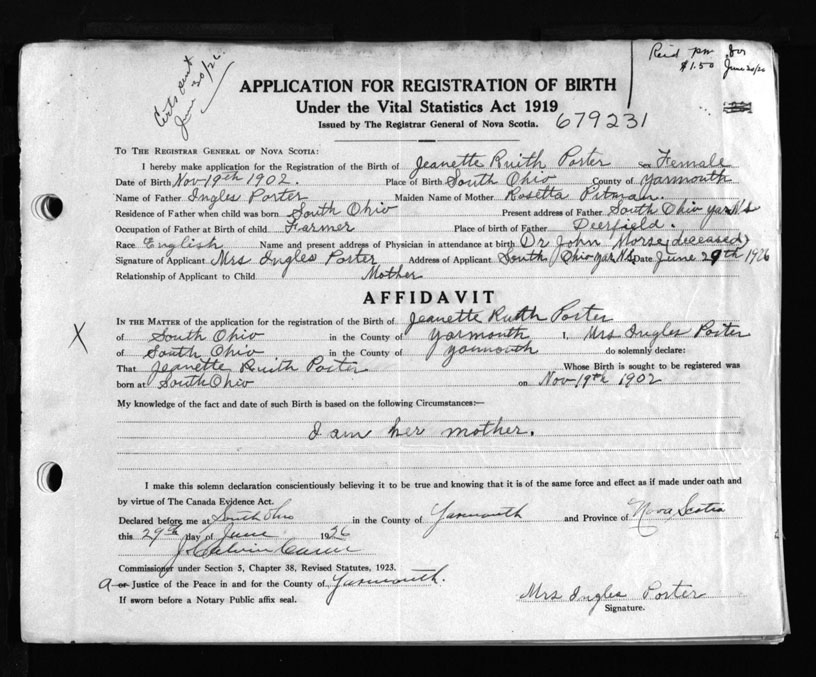 Certs sent
June 30/26
Reid pm for
$1.50 June 30/26
APPLICATION FOR REGISTRATION OF BIRTH
Under the Vital Statistics Act 1919
Issued by The Registrar General of Nova Scotia. 679231
TO THE REGISTRAR GENERAL OF NOVA SCOTIA:
I hereby make application for the Registration of the Birth of Jeanette Ruith Porter Female
Date of Birth Nov-19th 1902. Place of Birth South Ohio County of Yarmouth
Name of Father Ingles Porter Maiden Name of Mother Rosetta Pitman.
Residence of Father when child was born South Ohio Present address of Father South Ohio Yar N.S
Occupation of Father at Birth of child Farmer Place of birth of Father Deerfield.
Race English Name and present address of Physician in attendance at birth Dr John Morse (deceased)
Signature of Applicant Mrs Ingles Porter Address of Applicant South Ohio Yar N.S. Date June 29th 1926
Relationship of Applicant to Child Mother
AFFIDAVIT
IN THE MATTER of the application for the registration of the Birth of Jeanette Ruith Porter
X of South Ohio in the County of Yarmouth I, Mrs Ingles Porter
of South Ohio in the County of Yarmouth do solemnly declare:
That Jeanette Ruith Porter Whose Birth is sought to be registered was
born at South Ohio on Nov-19th 1902
My knowledge of the fact and date of such Birth is based on the following Circumstances:—
I am her mother.
I make this solemn declaration conscientiously believing it to be true and knowing that it is of the same force and effect as if made under oath and
by virtue of The Canada Evidence Act.
Declared before me at South Ohio in the County of Yarmouth and Province of Nova Scotia
this 29th day of June 1926
J. Calvin
Commissioner under Section 5, Chapter 38, Revised Statutes, 1923.
a or Justice of the Peace in and for the County of Yarmouth.
If sworn before a Notary Public affix seal.
Mrs Ingles Porter
Signature.